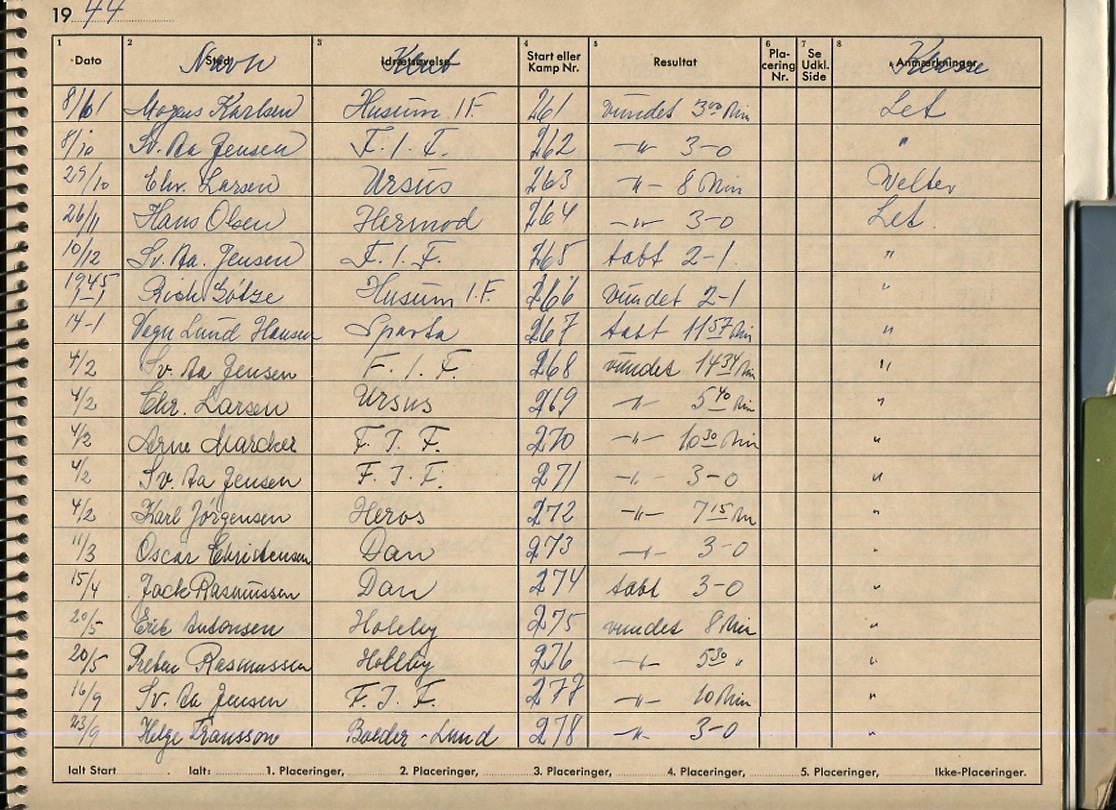 19 44
1 Dato 2 Sted Navn 3 Idrætsøvelse Klub 4 Start eller Kamp Nr. 5 Resultat 6 Placering Nr. 7 Se Udkl. Side 8 Anmærkninger Klasse
8/10 Mogens Karlsen Husum I.F. 261 vundet 3 00 Min Let
8/10 Sv. Aa Jensen F. I. F. 262 -〃- 3-0 〃
29/10 Chr. Larsen Ursus 263 -〃- 8 Min Welter
26/11 Hans Olsen Hermod 264 -〃- 3-0 Let.
10/12 Sv. Aa. Jensen F. I. F. 265 tabt 2-1. 〃
1945 1-1 Götze Husum I.F. 266 vundet 2-1 〃
14-1 Vagn Lund Hansen Sparta 267 tabt 11 57 Min 〃
4/2 Sv. Aa Jensen F. I. F. 268 vundet 14 34 Min 〃
4/2 Chr. Larsen Ursus 269 -〃- 5 40 Min 〃
4/2 Arne Marcker F. I. F. 270 -〃- 10 30 Min 〃
4/2 Sv. Aa Jensen F. I. F. 271 -〃- 3-0 〃
4/2 Karl Jörgensen Heros 272 -〃- 7 15 Min 〃
11/3 Oscar Christensen Dan 273 -〃- 3-0 〃
15/4 Jack Rasmussen Dan 274 tabt 3-0 〃
20/5 Erik Antonsen Holeby 275 vundet 8 Min 〃
20/5 Preben Rasmussen Holeby 276 -〃- 5 30 〃 〃
16/9 Sv. Aa Jensen F. I. F. 277 -〃- 10 Min 〃
23/9 Helge Fransson Lund 278 -〃- 3-0 〃
Ialt Start Ialt: 1. Placeringer, 2. Placeringer, 3. Placeringer, 4. Placeringer, 5. Placeringer, Ikke-Placeringer.